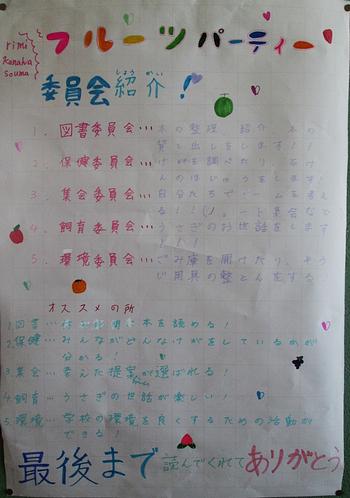 rimi
Kanaha
Souma
フルーツパーティー
委員会紹介！
しょう かい
1. 図書委員会…本の整理 紹介 本の
貸し出しをします！！
2. 保健委員会…けがを調べたり、石け
んのほじゅうをします！
3. 集会委員会…自分たちでゲームを考え
る！！
4. 飼育委員会…うさぎのお世話をします
5. 環境委員会…ごみ庫を開けたり、そう
じ用具の整とんをする
オススメの所
1.図書… 本を読める！
2.保健…みんながどんなけがをしているかが
分かる！
3.集会…考えた提案が選ばれる！
4.飼育…うさぎの世話が楽しい！
5.環境…学校の環境を良くするための活動が
できる！
最後まで読んでくれてありがとう